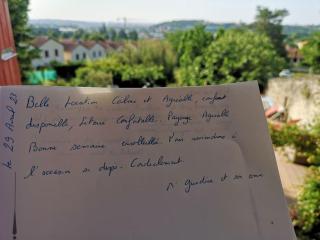 le 29 Avril 23
Belle location Calme et Agréable, confort
disponible, literie confortable. Paysage Agréable
Bonne semaine ensoleillée. Nous reviendrons à
l'occasion si dispo. Cordialement.
et son